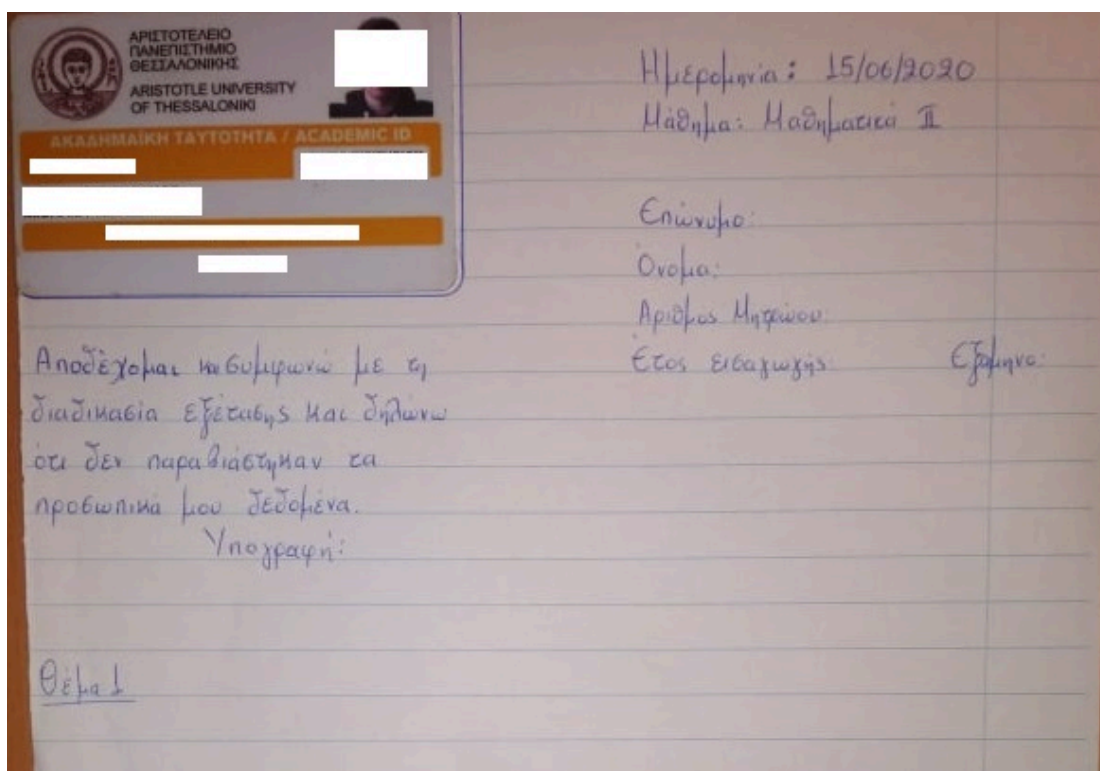 ΑΡΙΣΤΟΤΕΛΕΙΟ
ΠΑΝΕΠΙΣΤΗΜΙΟ
ΘΕΣΣΑΛΟΝΙΚΗΣ
ARISTOTLE UNIVERSITY
OF THESSALONIKI
ΑΚΑΔΗΜΑΪΚΗ ΤΑΥΤΟΤΗΤΑ / ACADEMIC ID
Ημερομηνία: 15/06/2020
Μάθημα: Μαθηματικά II
Επώνυμο:
Όνομα:
Αριθμός Μητρώου:
Έτος εισαγωγής: Εξάμηνο:
Αποδέχομαι και συμφωνώ με τη
διαδικασία εξέτασης και δηλώνω
ότι δεν παραβιάστηκαν τα
προσωπικά μου δεδομένα.
Υπογραφή:
Θέμα 1